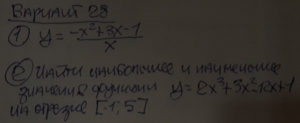 Вариант 29
① y = -x²+3x-1 / x
② Найти наибольшее и наименьшее
значения функции y=2x³+3x²-12x+1
на отрезке [-1, 5]